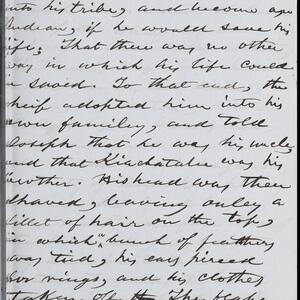 into his tribe, and become an
Indian, if he would save his
life; That there was no other
way in which his life could
be saved. To that end, the
chief adopted him into his
own family, and told
Joseph that he was his uncle,
and that Kiachatalee was his
brother. His head was then
shaved, leaving onley a
fillet of hair on the top,
in which a bunch of feathers
was tied, his ears pierced
for rings, and his clothes
taken off. The